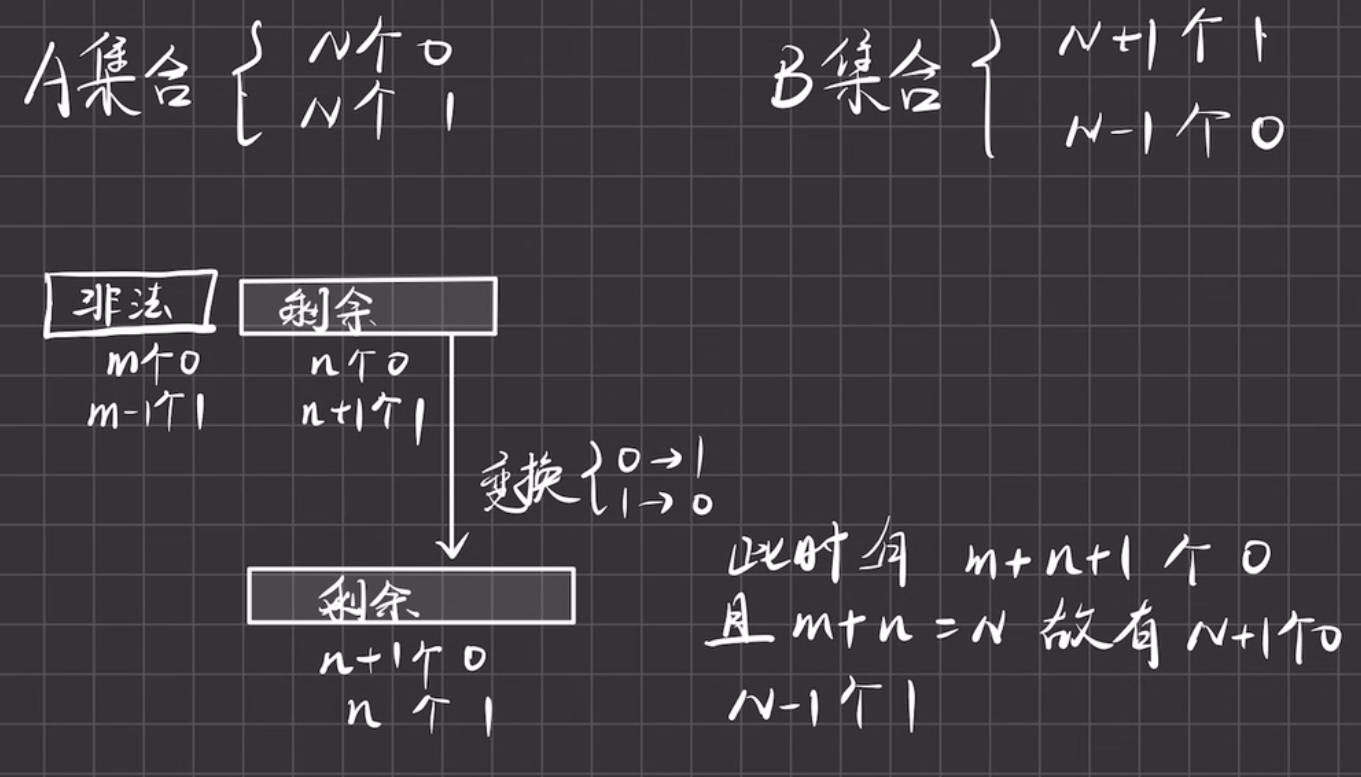 A集合 { N个0
N个 1
B集合 { N+1个 1
N-1个0
非法
m个0
m-1个1
剩余
n个0
n+1个1
变换 { 0→1
1→0
剩余
n+1个0
n 个 1
此时有 m+n+1 个 0
且 m+n=N 故有 N+1个0
N-1个1